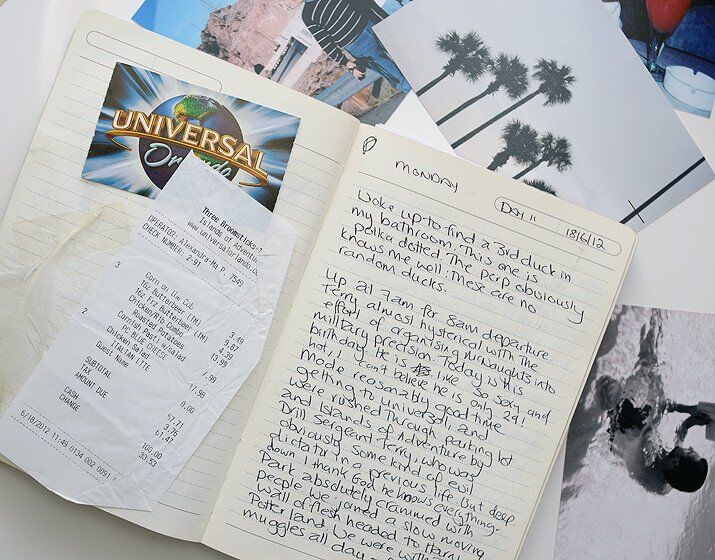 UNIVERSAL
Orlando
Three Broomsticks
Islands of Adventu
www.universalorlando.c
OPERATOR: Alexandre-Mo P. 7549
CHECK NUMBER: 2-91
3 Corn on the Cob 3.49
16z Butterbeer (TM) 9.87
16z Frz Butterbeer (TM) 4.39
Chicken/Rib Combo 13.99
Roasted Potatoes
2 Cornish Past w/Salad 7.99
PC BLUE CHEESE
2 Chicken Salad 17.98
ITALIAN LITE
Guest Name 0.00
SUBTOTAL 57.71
TAX 3.76
AMOUNT DUE 61.47
CASH 100.00
CHANGE
6/18/2012 11:49 0134 002 0091
MONDAY Day 11 18/6/12
Woke up to find a 3rd duck in
my bathroom. This one is
polka dotted. The perp obviously
knows me well. These are no
random ducks.
Up at 7am for 8am departure
Terry almost hysterical with the
effort of organising McNaughts into
military precision. Today is his
birthday. He is like so sexy and
hot, I can't believe he is only 29!
Made reasonably good time
getting to Universal, and
were rushed through parking lot
and Islands of Adventure by
Drill Sergeant Terry, who was
obviously some kind of evil
dictator in a previous life. But deep
down I thank God he knows everything.
Park absolutely crammed with
people. We joined a slow moving
wall of flesh headed to Harry
Potter land. We were with
muggles all day